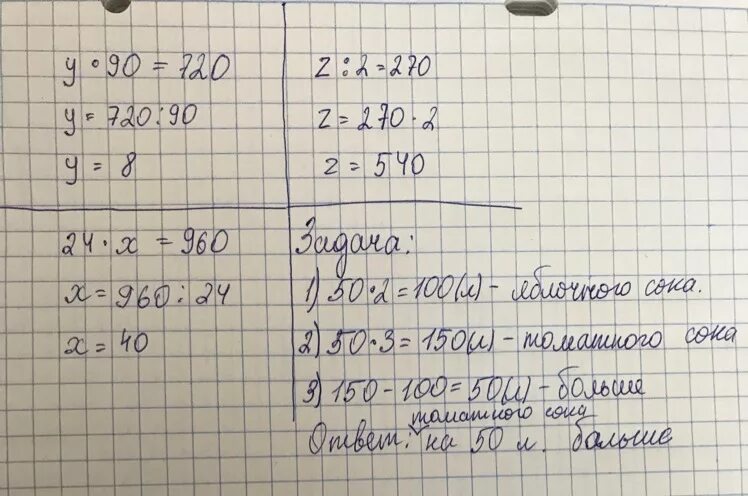 y · 90 = 720
y = 720 : 90
y = 8
z : 2 = 270
z = 270 · 2
z = 540
24 · x = 960
x = 960 : 24
x = 40
Задача:
1) 50 · 2 = 100 (л) - яблочного сока.
2) 50 · 3 = 150 (л) - томатного сока
3) 150 - 100 = 50 (л) - больше
томатного сока
Ответ: на 50 л. больше